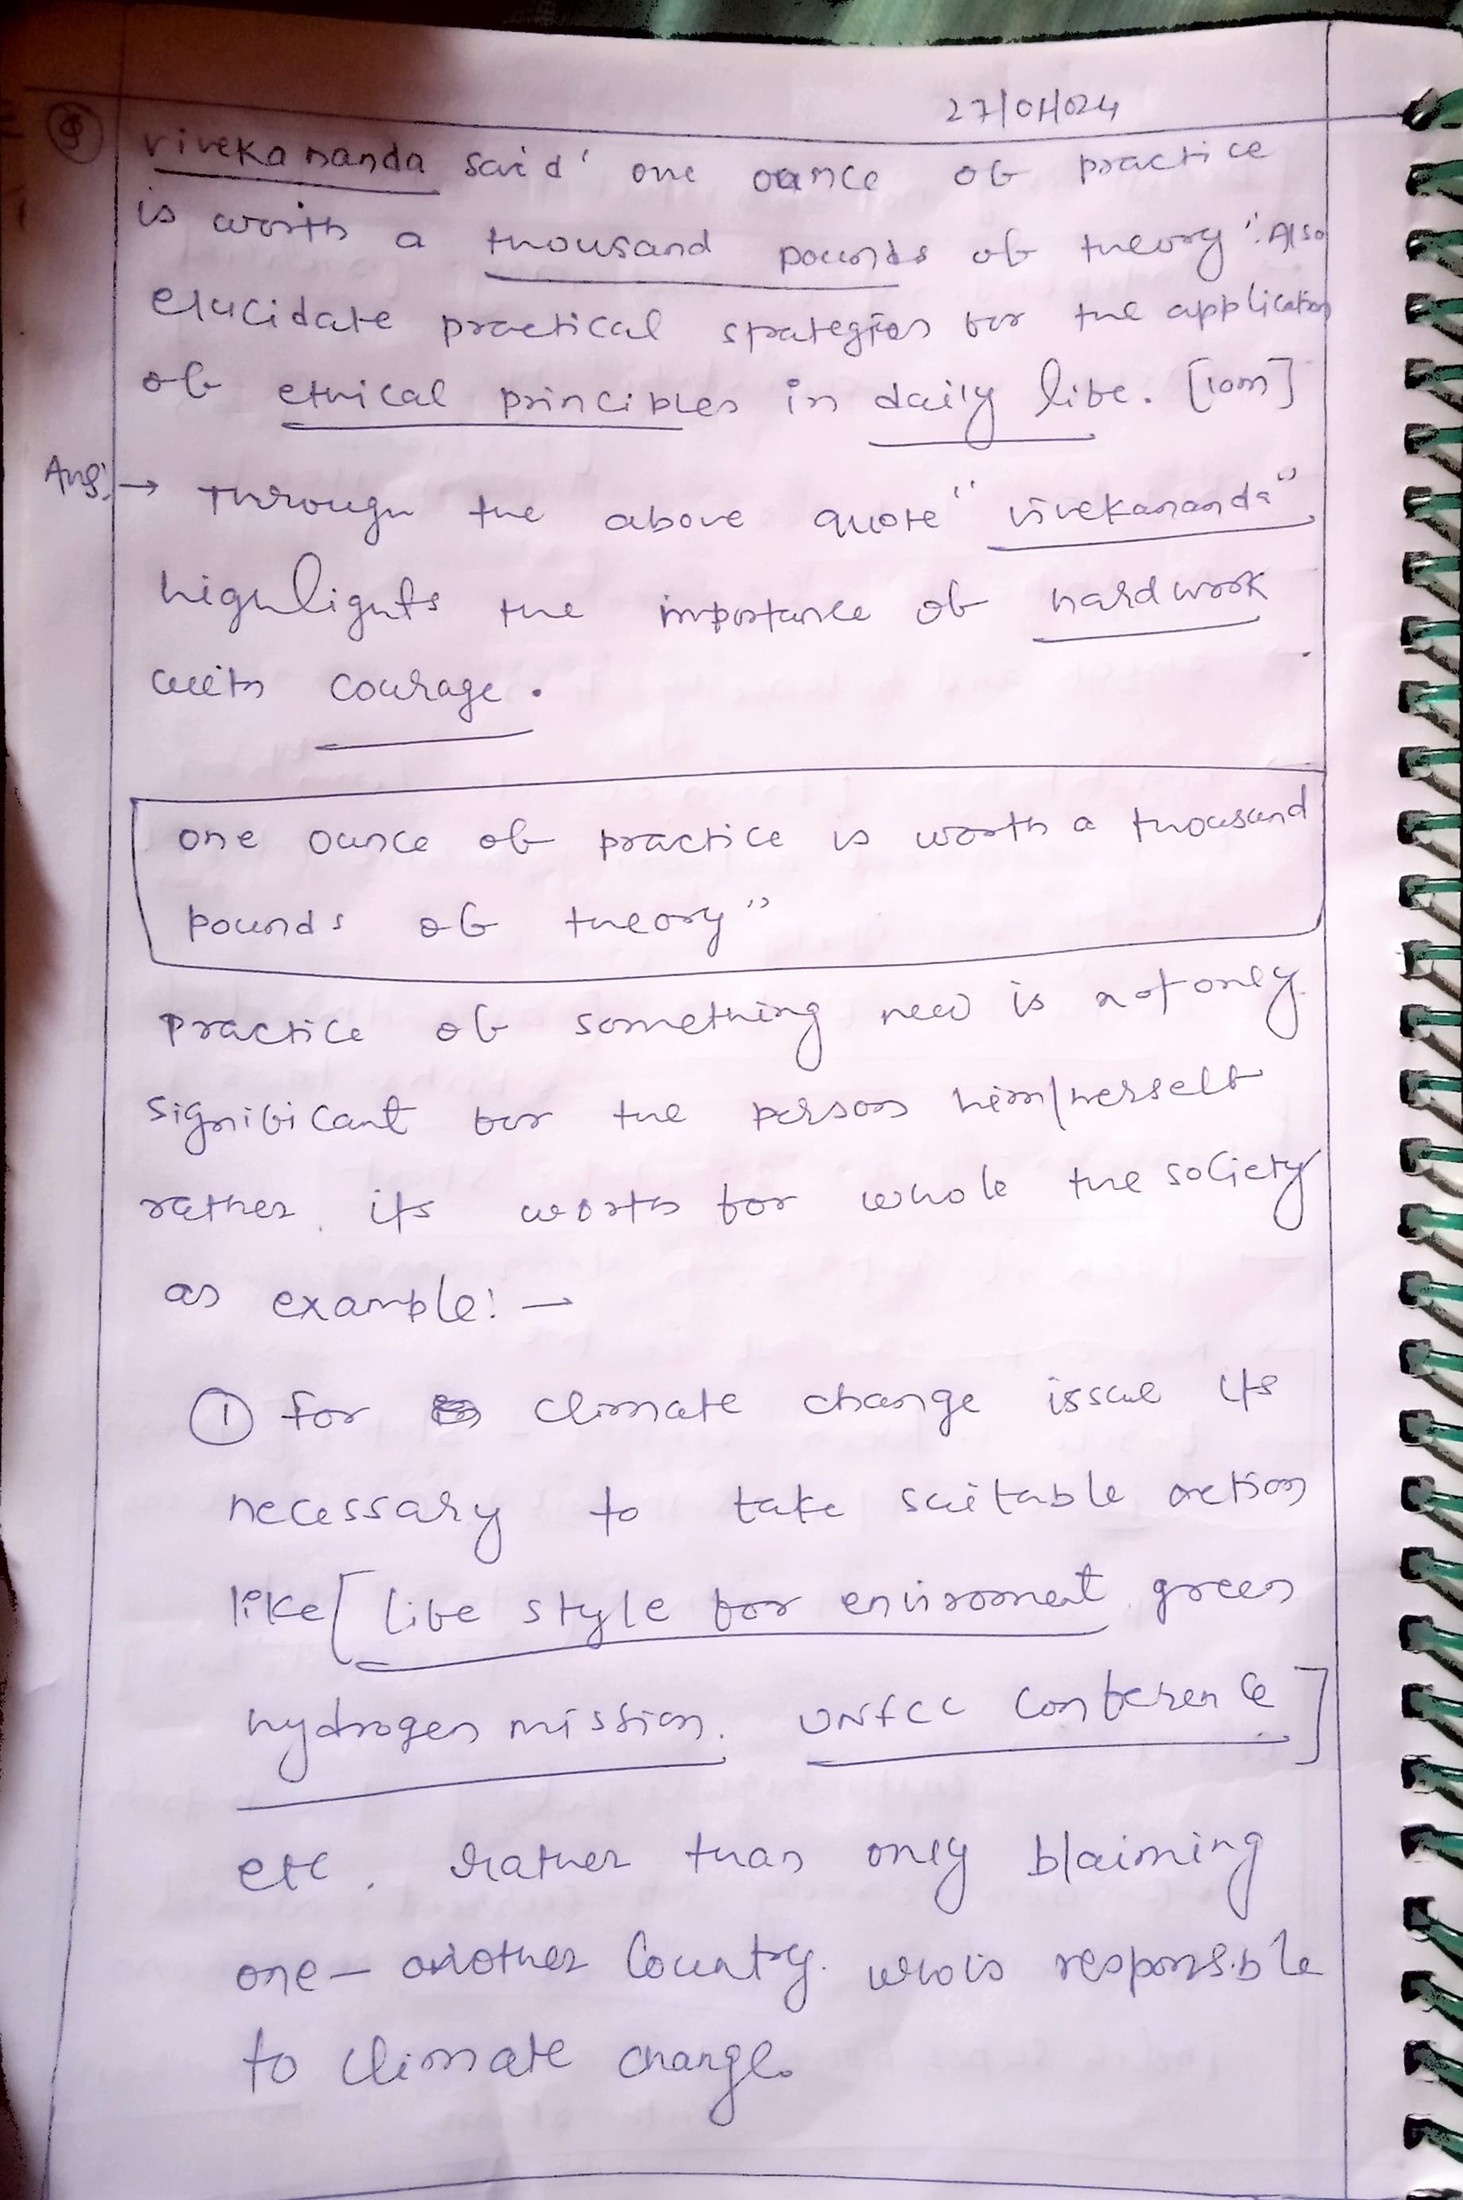 27/01/024
Q vivekananda said ' one ounce of practice
is worth a thousand pounds of theory". Also
elucidate practical strategies for the application
of ethical principles in daily life. [10m]
Ans: → Through the above quote "vivekananda"
highlights the importance of hardwork
with courage.
one ounce of practice is worth a thousand
pounds of theory"
Practice of something new is not only
significant for the person him/herself
rather its worth for whole the society
as example: →
① for climate change issue its
necessary to take suitable action
like [life style for enviroment green
hydrogen mission. UNFCC Conference]
etc. rather than only blaiming
one - another Country who is responsible
to climate change.